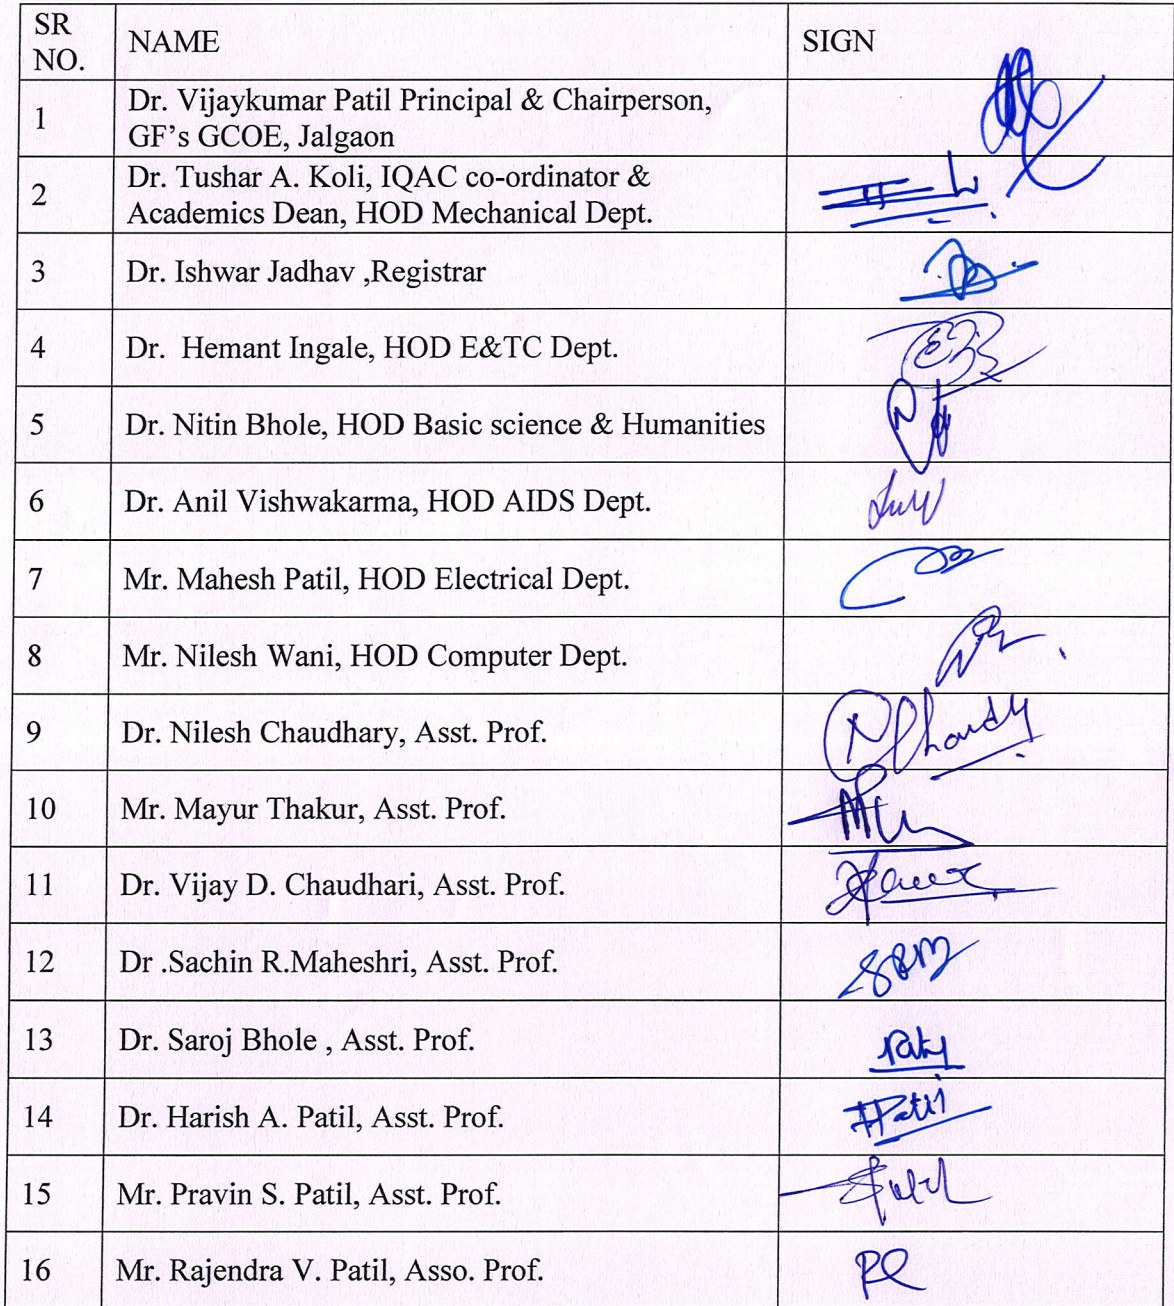 SR
NO.
NAME
SIGN
1
Dr. Vijaykumar Patil Principal & Chairperson,
GF's GCOE, Jalgaon
2
Dr. Tushar A. Koli, IQAC co-ordinator &
Academics Dean, HOD Mechanical Dept.
3
Dr. Ishwar Jadhav ,Registrar
4
Dr. Hemant Ingale, HOD E&TC Dept.
5
Dr. Nitin Bhole, HOD Basic science & Humanities
6
Dr. Anil Vishwakarma, HOD AIDS Dept.
7
Mr. Mahesh Patil, HOD Electrical Dept.
8
Mr. Nilesh Wani, HOD Computer Dept.
9
Dr. Nilesh Chaudhary, Asst. Prof.
10
Mr. Mayur Thakur, Asst. Prof.
11
Dr. Vijay D. Chaudhari, Asst. Prof.
12
Dr .Sachin R.Maheshri, Asst. Prof.
SRM
13
Dr. Saroj Bhole , Asst. Prof.
14
Dr. Harish A. Patil, Asst. Prof.
HPatil
15
Mr. Pravin S. Patil, Asst. Prof.
16
Mr. Rajendra V. Patil, Asso. Prof.